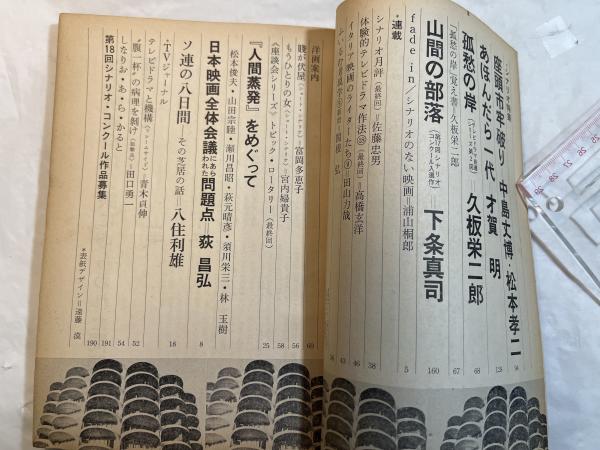 ・シナリオ特集
座頭市牢破り 中島丈博・松本孝二
あほんだら一代 才賀 明
孤愁の岸 久板栄二郎
「孤愁の岸」覚え書・久板栄二郎
山間の部落〈第17回シナリオコンクール入選作〉下条真司 160
・連載
fade in／シナリオのない映画＝浦山桐郎 5
シナリオ月評〈最終回〉＝佐藤忠男 38
体験的テレビドラマ作法〈最終回〉＝高橋玄洋
イタリア映画のライターたち＝田山力哉
洋画案内
賤が伏屋 富岡多恵子 69
もうひとりの女 宮内婦貴子 56
《座談会シリーズ》トピック・ロータリー〈最終回〉 58
『人間蒸発』をめぐって 25
松本俊夫・山田宗睦・瀬川昌昭・萩元晴彦・須川栄三・林 玉樹
日本映画全体会議にあらわれた問題点 荻 昌弘 8
ソ連の八日間―その芝居の話―八住利雄 16
・TVジャーナル
テレビドラマと機構 ＝青木貞伸 52
“腹一杯”の病理を剝け 田口勇一 54
しなりお・あ・ら・かると 191
第18回シナリオ・コンクール作品募集 190
＊表紙デザイン＝遠藤 漠